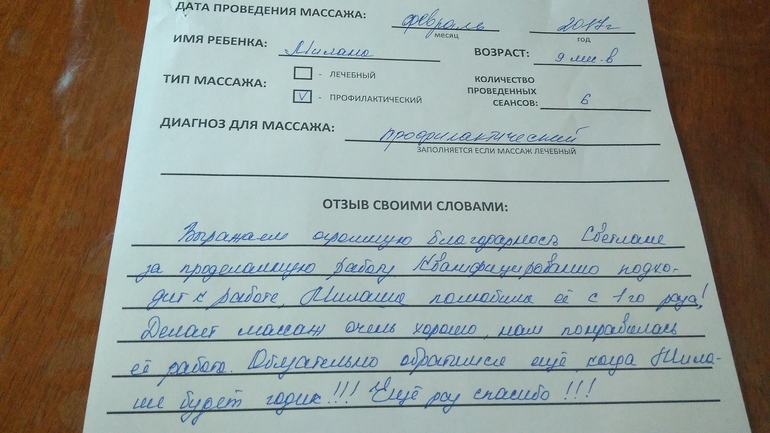 ДАТА ПРОВЕДЕНИЯ МАССАЖА: февраль 2017г
месяц год
ИМЯ РЕБЕНКА: Милана ВОЗРАСТ: 9 мес-в
ТИП МАССАЖА: - ЛЕЧЕБНЫЙ КОЛИЧЕСТВО ПРОВЕДЕННЫХ СЕАНСОВ: 6
V - ПРОФИЛАКТИЧЕСКИЙ
ДИАГНОЗ ДЛЯ МАССАЖА: профилактический
ЗАПОЛНЯЕТСЯ ЕСЛИ МАССАЖ ЛЕЧЕБНЫЙ
ОТЗЫВ СВОИМИ СЛОВАМИ:
Выражаем огромную благодарность Светлане
за проделанную работу Квалифицированно подхо-
дит к работе, Милаша полюбила её с 1го раза!
Делает массаж очень хорошо, нам понравилась
её работа. Обязательно обратимся ещё, когда Мила-
ше будет годик!!! Ещё раз спасибо!!!